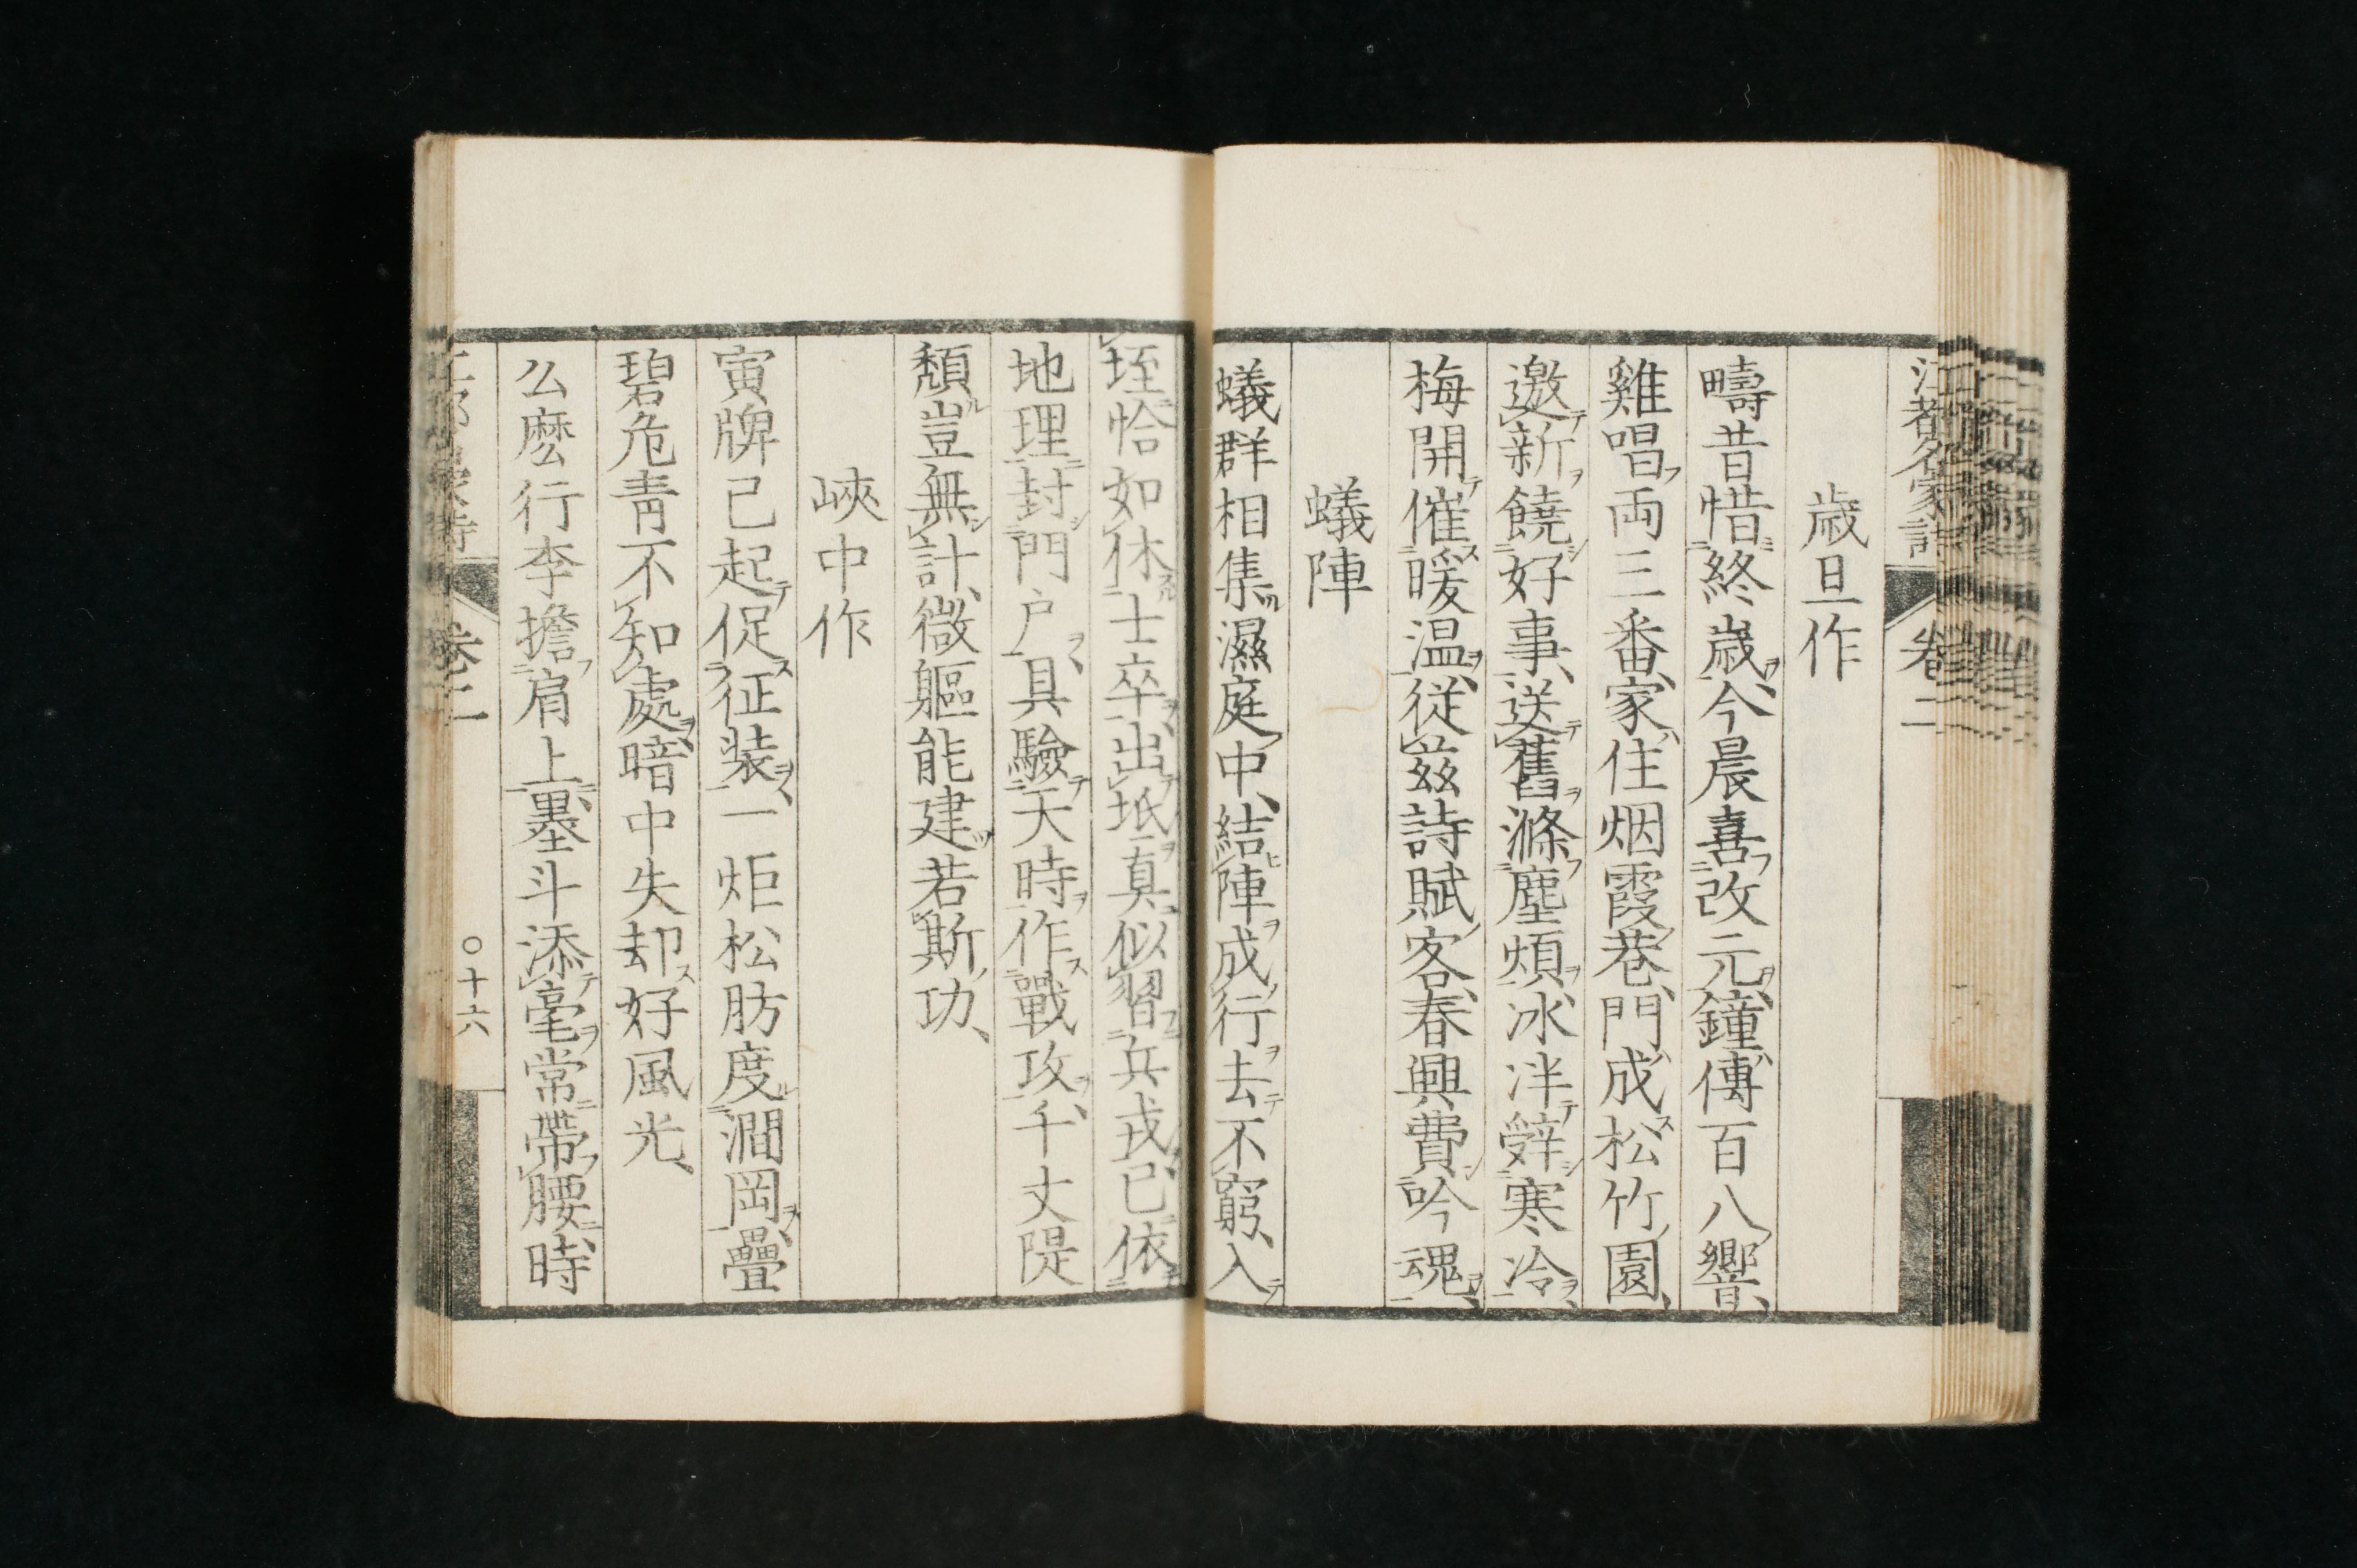 江都名家詩 卷二
歳旦作
疇昔惜終歳今晨喜改元鐘傳百八響
雞唱両三番家住烟霞巷門成松竹園
邀新饒好事送舊滌塵煩冰泮辤寒冷
梅開催暖温従茲詩賦客春興費吟魂
蟻陣
蟻群相集濕庭中結陣成行去不窮入
垤恰如休士卒出坻真似習兵戎已依
地理封門户具驗天時作戰攻千丈隄
頽豈無計微軀能建若斯功
峽中作
寅牌已起促征装一炬松肪度澗岡疊
碧危青不知處暗中失却好風光
么麽行李擔肩上墨斗添毫常帶腰時
卷二 〇十六